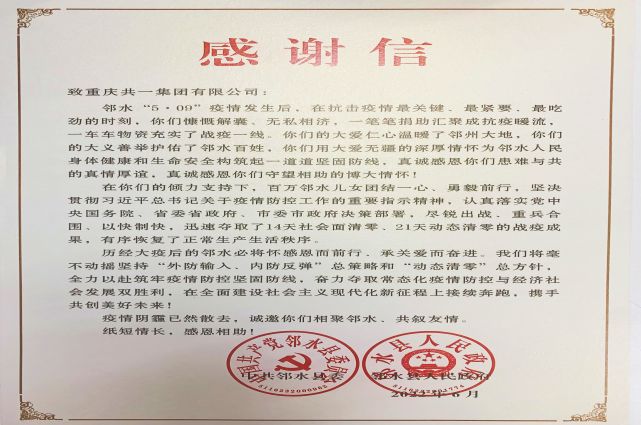 感谢信
致重庆共一集团有限公司：
邻水“5·09”疫情发生后，在抗击疫情最关键、最紧要、最吃
劲的时刻，你们慷慨解囊、无私相济，一笔笔捐助汇聚成抗疫暖流，
一车车物资充实了战疫一线。你们的大爱仁心温暖了邻州大地，你们
的大义善举护佑了邻水百姓，你们用大爱无疆的深厚情怀为邻水人民
身体健康和生命安全构筑起一道道坚固防线，真诚感恩你们患难与共
的真情厚谊，真诚感恩你们守望相助的博大情怀！
在你们的倾力支持下，百万邻水儿女团结一心、勇毅前行，坚决
贯彻习近平总书记关于疫情防控工作的重要指示精神，认真落实党中
央国务院、省委省政府、市委市政府决策部署，尽锐出战、重兵合
围、以快制快，迅速夺取了14天社会面清零、21天动态清零的战疫成
果，有序恢复了正常生产生活秩序。
历经大疫后的邻水必将怀感恩而前行、承关爱而奋进。我们将毫
不动摇坚持“外防输入、内防反弹”总策略和“动态清零”总方针，
全力以赴筑牢疫情防控坚固防线，奋力夺取常态化疫情防控与经济社
会发展双胜利，在全面建设社会主义现代化新征程上接续奔跑，携手
共创美好未来！
疫情阴霾已然散去，诚邀你们相聚邻水、共叙友情。
纸短情长，感恩相助！
中国共产党邻水县委员会
邻水县人民政府
中共邻水县委
邻水县人民政府
2022年6月